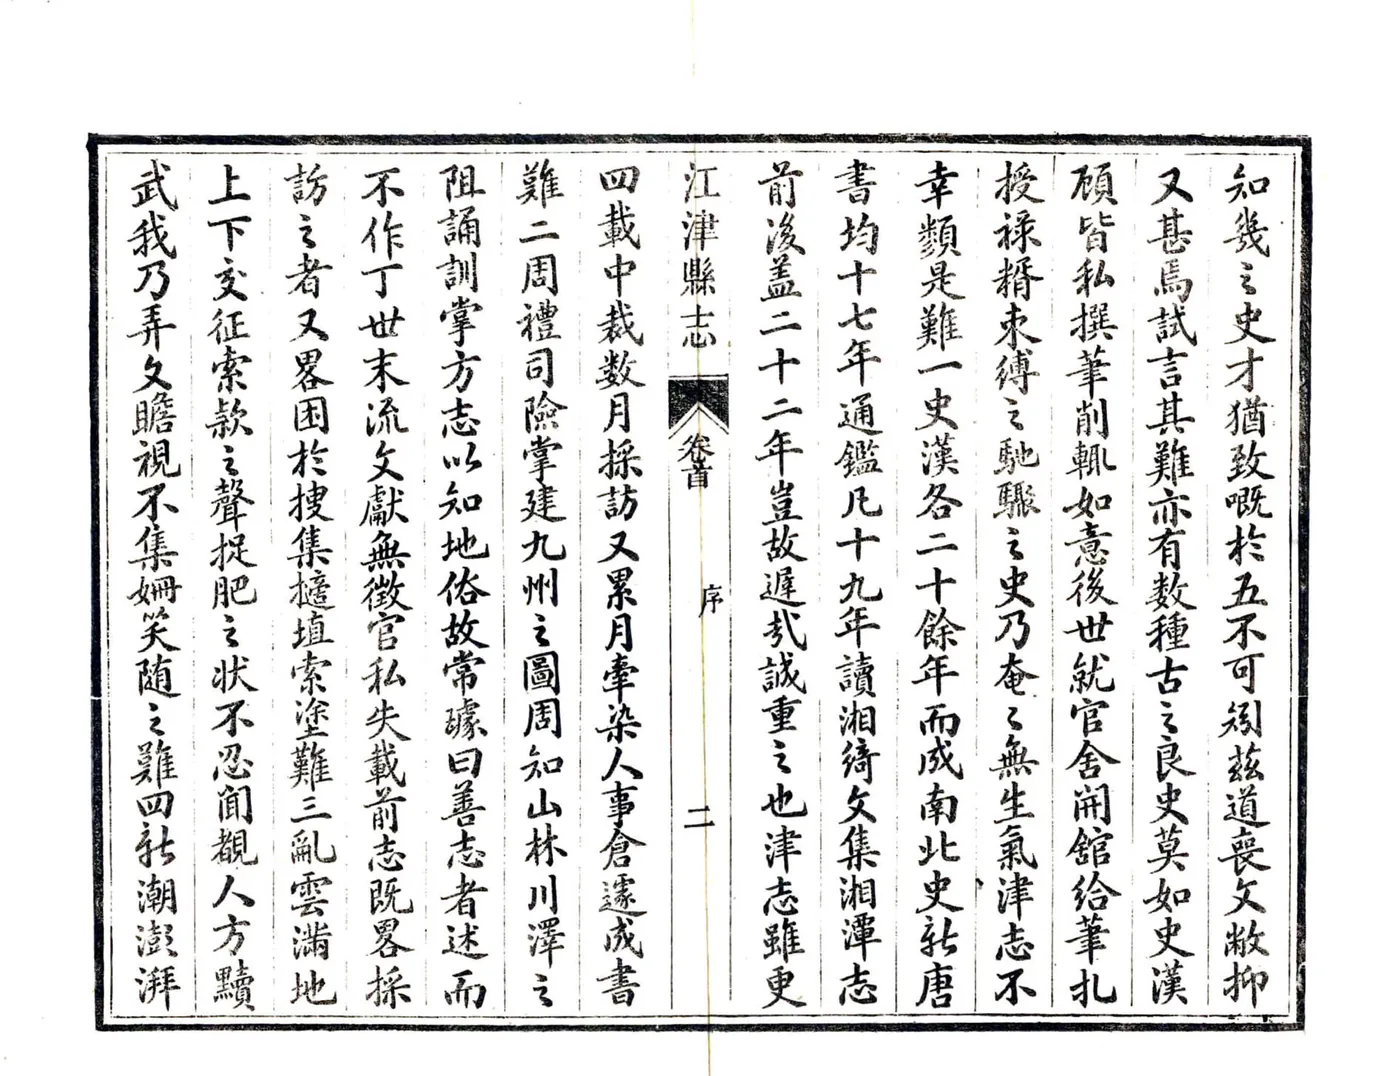 知幾之史才猶致嘅於五不可矧茲道喪文敝抑
又甚焉試言其難亦有数種古之良史莫如史漢
顧皆私撰筆削輒如意後世就官舍開舘給筆扎
授祿糈束縛之馳驟之史乃奄〻無生氣津志不
幸類是難一史漢各二十餘年而成南北史新唐
書均十七年通鑑凡十九年讀湘綺文集湘潭志
前後盖二十二年豈故遲㢤誠重之也津志雖更
江津縣志
卷首
序
二
四載中裁数月採訪又累月牽染人事倉遽成書
難二周禮司險掌建九州之圖周知山林川澤之
阻誦訓掌方志以知地俗故常璩曰善志者述而
不作丁世末流文獻無徵官私失載前志既畧採
訪之者又畧困於搜集擿埴索塗難三亂雲滿地
上下交征索款之聲捉肥之状不忍聞覩人方黷
武我乃弄文瞻視不集姍笑随之難四新潮澎湃